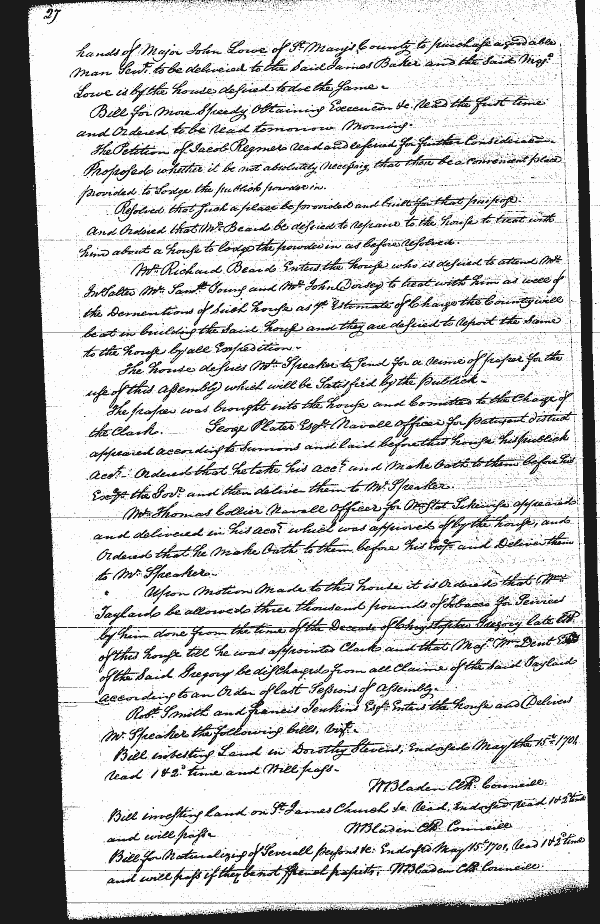 27
hands of Major John Lowe of St Mary's County to purchase a good able
man Servt. to be delivered to the said James Baker and the said Majr.
Lowe is by the house desired to doe the same.
Bill for more Speedy Obtaining Execucon &c. read the first time
and Ordered to be read tomorrow Morning.
The Petition of Jacob Regnier read and referred for further Consideration
Proposed whether it be not absolutely necessary that there be a convenient place
provided to Lodge the publick powder in.
Resolved that such a place be provided and built for that purpose.
And Ordered that Mr. Beard be desired to repaire to the house to treat with
him about a house to lodge the powder in as before resolved.
Mr. Richard Beard Enters the house who is desired to attend Mr.
Jno Salter Mr. Samll Young and Mr. John Dorsey to treat with him as well of
the Dementions of Such house as ye Estimate of Charge the County will
be at in building the Said house and they are desired to report the Same
to the house by all Expedition.
The house desires Mr. Speaker to send for a reime of paper for the
use of this Assembly which will be Satisfied by the publick.
The paper was brought into the house and Comitted to the Charge of
the Clark. George Plater Esqr. Navall Officer for Patuxent district
appeared according to Sumons and laid before this house his publick
Acct. Ordered that he take his acct. and make Oath to them before his
Excy. the Govr. and then deliver them to Mr. Speaker.
Mr. Thomas Collier Navall Officer for Wmstat likewise appeared
and delivered in his acct. which was approved of by the house, and
Ordered that he make Oath to them before his Excy. and Deliver them
to Mr. Speaker.
Upon Motion Made to this house it is Ordered that Wm.
Taylard be allowed three thousand pounds of Tobacco for Services
by him done from the time of the Decease of Christopher Gregory late Clk
of this house till he was appointed Clark and that Majr. Wm. Dent
of the Said Gregory be discharged from all Claime of the said Taylard
according to an Order of last Sessons of Assembly.
Robt. Smith and Francis Jenkins Esqrs. Enters the house and Delivers
Mr. Speaker the following bills, Vizt.
Bill investing Land in Dorothy Stevens, Endorsed May the 15th. 1701.
read 1 & 2d. time and Will pass.
W Bladen Clk. Councill.
Bill investing land on St. James Church &c. read, Endorsed, read 1 & 2d time
and will pass. W Bladen Clk. Councill
Bill for Naturalizing of Severall persons &c. Endorsed May 15th. 1701, read 1 & 2d time
and will pass if they be not ffrench papists. W Bladen Clk. Councill.